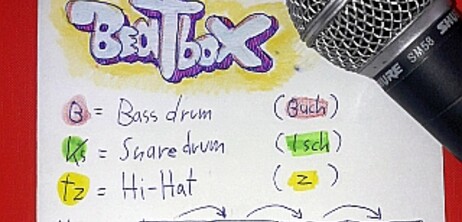 BeatboX
B = Bass drum (Buch)
Ks = Snare drum (Isch)
tz = Hi-Hat (z)
SHURE SM58
SHURE